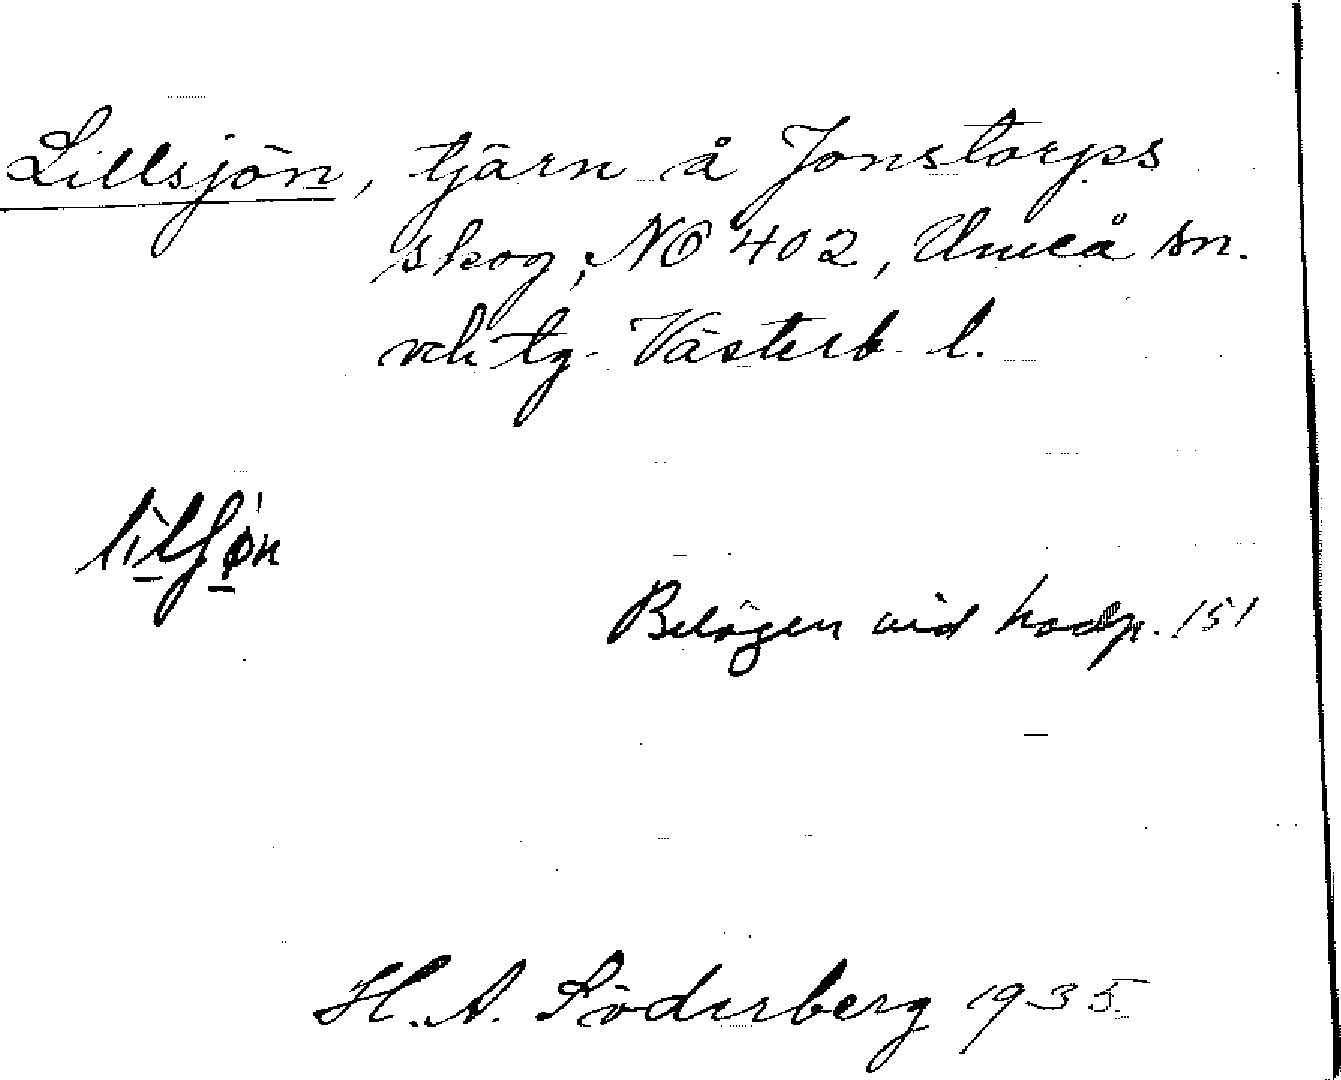 Lillsjön, tjärn å Jonstorps
skog, NO 402, Umeå sn.
och tg. Västerb. l.
Belägen vid hödp. 151
H. A. Söderberg 1935.